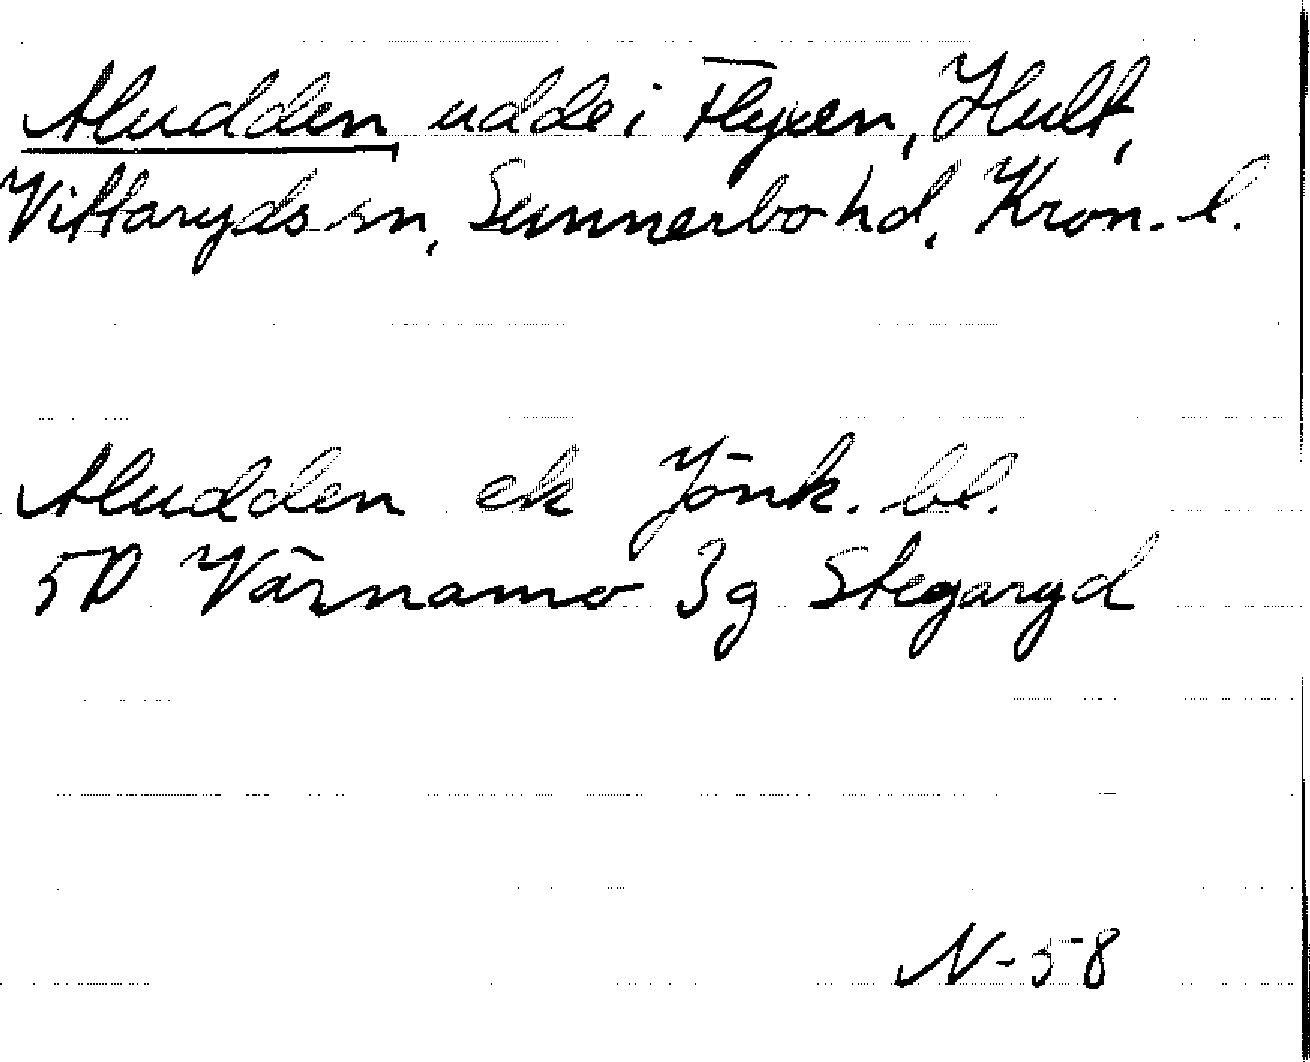 Aludden udde i Flyxen, Hult,
Vittaryds sn, Sunnerbo hd, Kron. l.
Aludden ek Jönk. bl.
5D Värnamo 3g Stegaryd
N-58